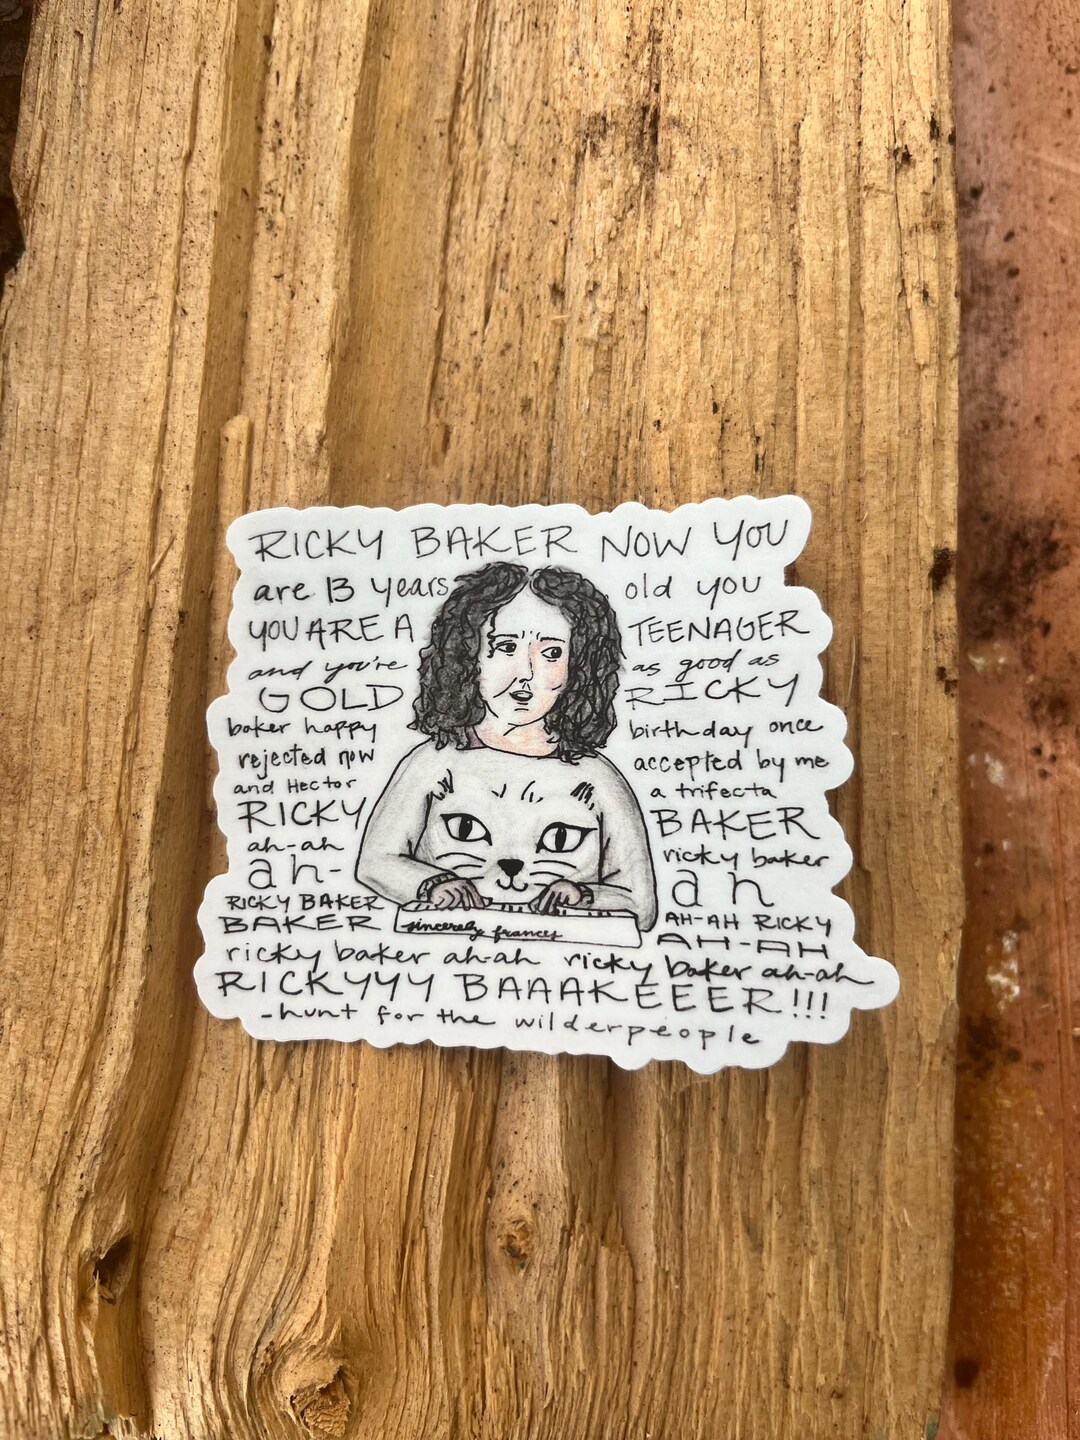 RICKY BAKER NOW YOU
are 13 years old you
YOU ARE A TEENAGER
and you're as good as
GOLD RICKY
baker happy birthday once
rejected now accepted by me
and Hector a trifecta
RICKY BAKER
ah-ah ricky baker
ah- ah
RICKY BAKER AH-AH RICKY
BAKER AH-AH
sincerely, frances
ricky baker ah-ah ricky baker ah-ah
RICKYYYY BAAAKEEEER!!!
-hunt for the wilderpeople